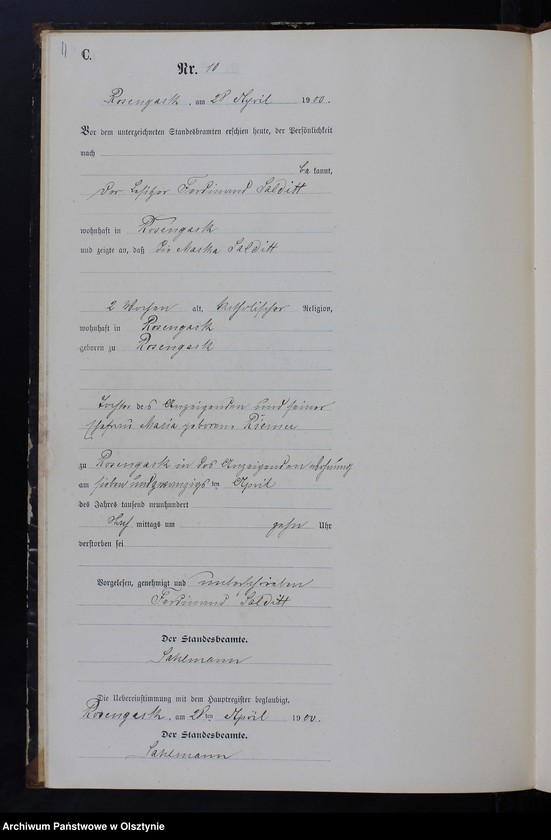 11
C.
Nr. 10
Rosengarth, am 28 April 1900.
Vor dem unterzeichneten Standesbeamten erschien heute, der Persönlichkeit
nach
be kannt,
der Besitzer Ferdinand Salditt
wohnhaft in Rosengarth
und zeigte an, daß die Martha Salditt
2 Wochen alt, katholischer Religion,
wohnhaft in Rosengarth
geboren zu Rosengarth
Tochter des Anzeigenden und seiner
Ehefrau Maria geborene
zu Rosengarth in des Anzeigenden Wohnung
am sieben und zwanzigs ten April
des Jahres tausend neunhundert
mittags um zehn Uhr
verstorben sei
Vorgelesen, genehmigt und unterschrieben
Ferdinand Salditt
Der Standesbeamte.
Sahlmann
Die Uebereinstimmung mit dem Hauptregister beglaubigt.
Rosengarth, am 28ten April 1900.
Der Standesbeamte.
Sahlmann
Archiwum Państwowe w Olsztynie